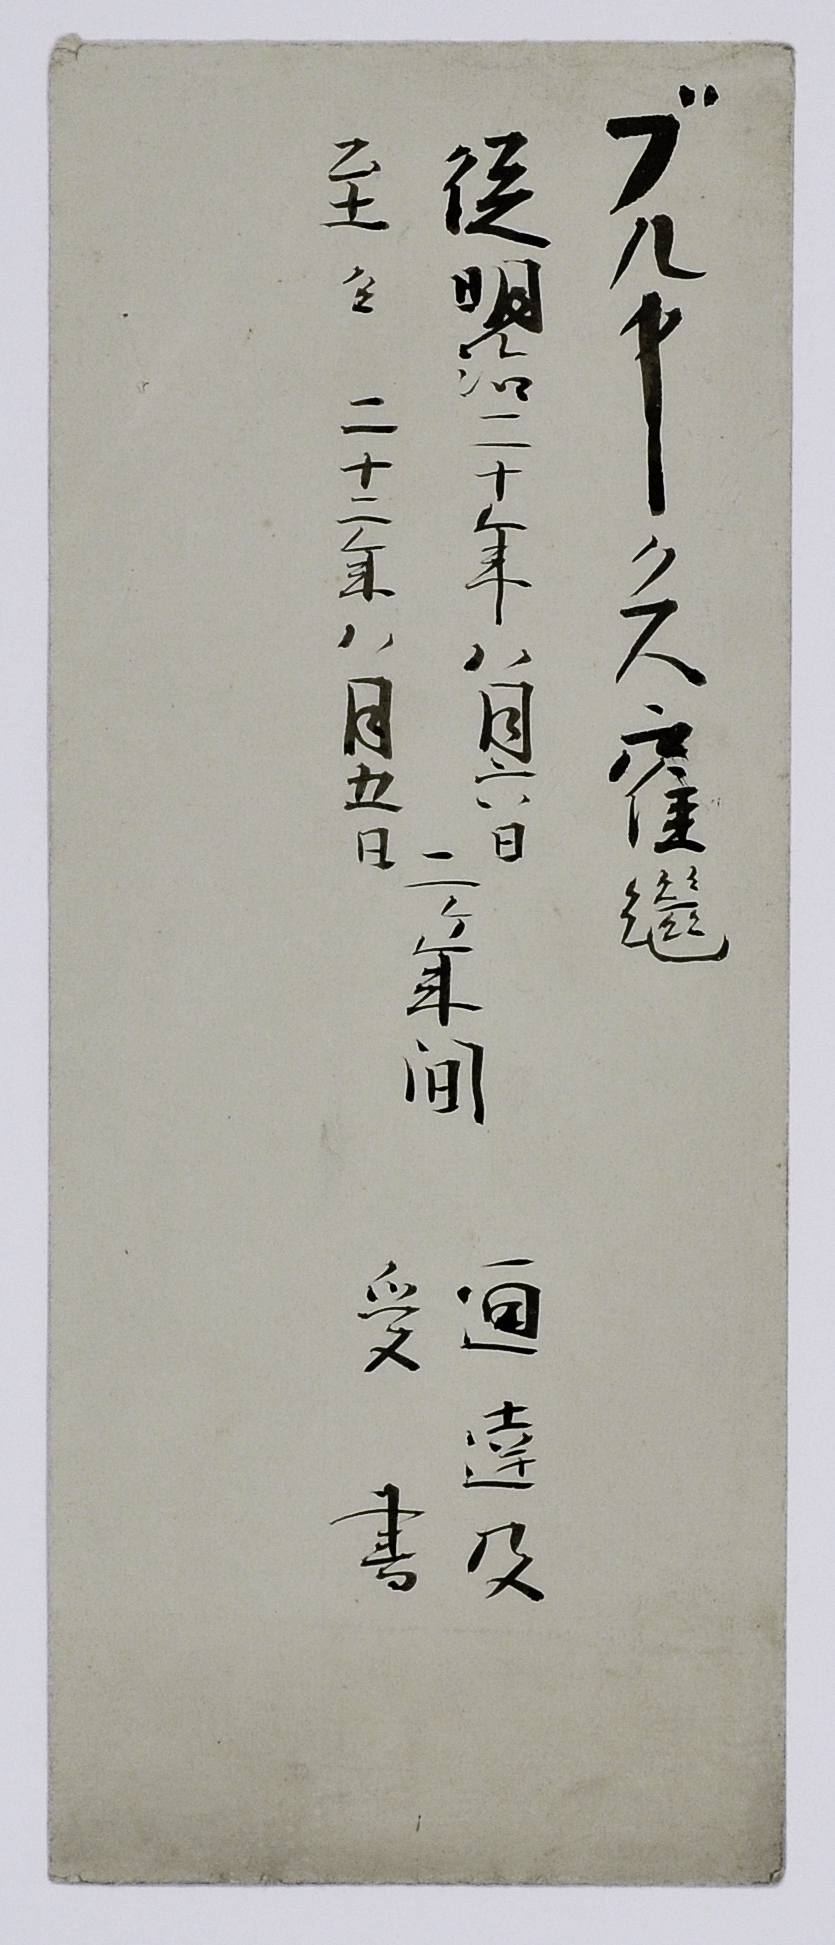 ブルヰークス雇継
従明治二十年八月六日
至仝 二十二年八月五日
二ヶ年間
通達及
受書